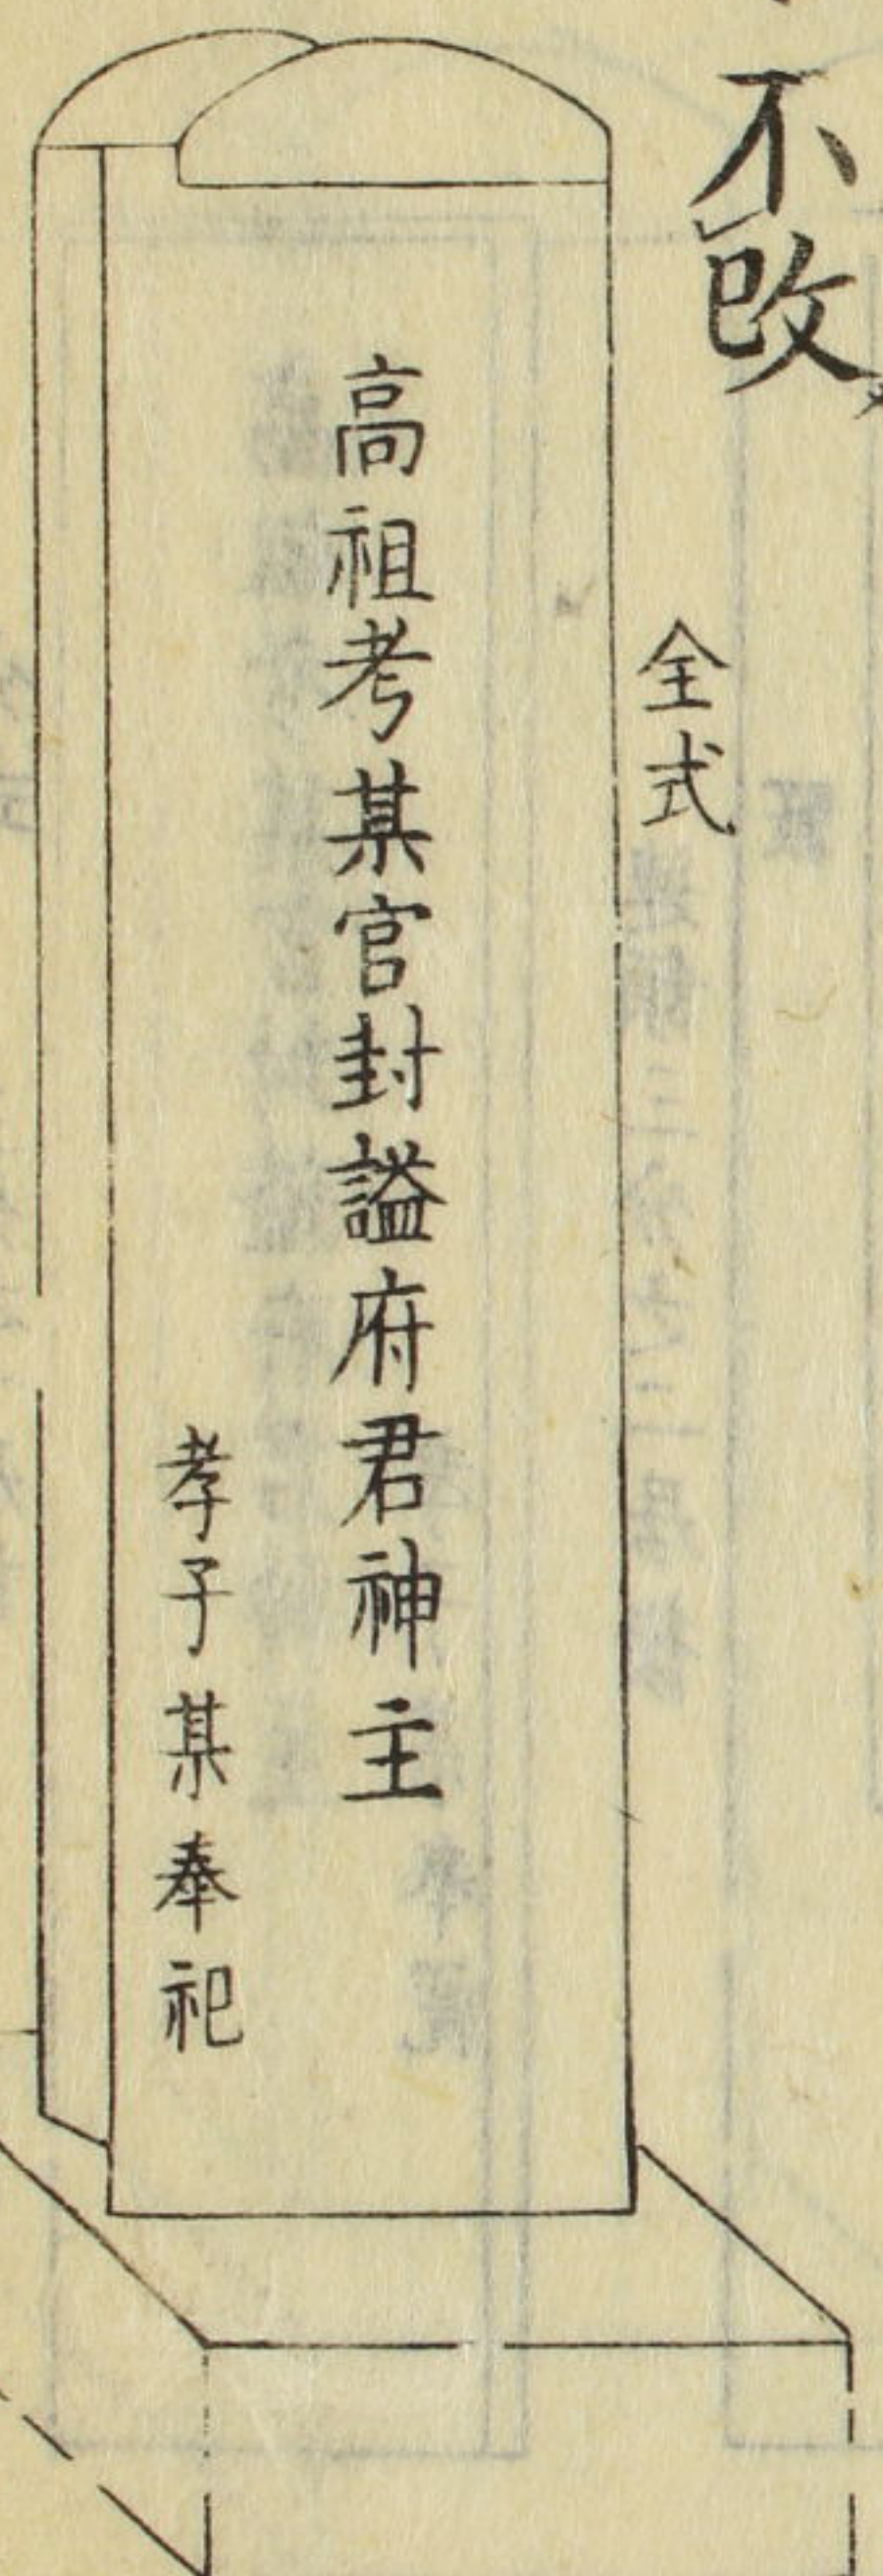 不改
全式
高祖考某官封謚府君神主
孝子某奉祀